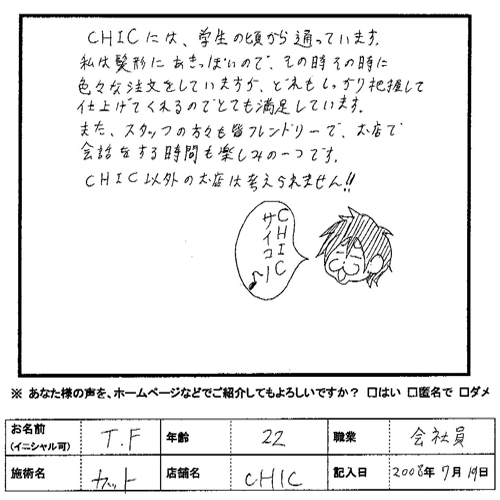 CHICには、学生の頃から通っています。
私は髪形にあきっぽいので、その時その時に
色々な注文をしていますが、どれもしっかり把握して
仕上げてくれるのでとても満足しています。
また、スタッフの方々も皆フレンドリーで、お店で
会話をする時間も楽しみの一つです。
CHIC以外のお店は考えられません!!
CHIC
サイコー♪
※ あなた様の声を、ホームページなどでご紹介してもよろしいですか? □はい □匿名で □ダメ
お名前 (イニシャル可) T.F 年齢 22 職業 会社員
施術名 カット 店舗名 CHIC 記入日 2008年7月19日